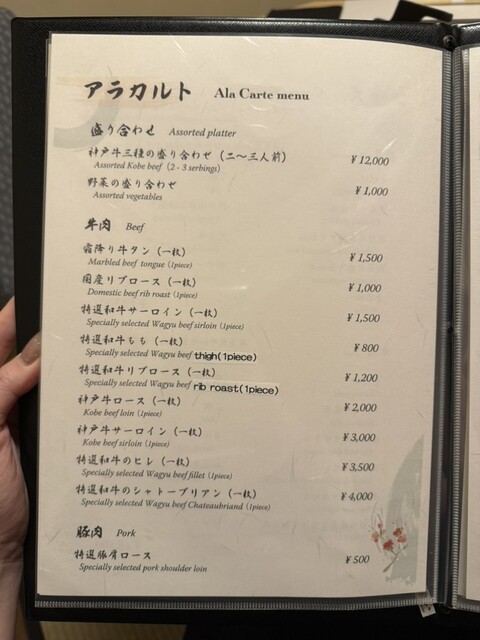 アラカルト Ala Carte menu
盛り合わせ Assorted platter
神戸牛三種の盛り合わせ（二〜三人前） ¥12,000
Assorted Kobe beef（2 - 3 serbings）
野菜の盛り合わせ ¥1,000
Assorted vegetables
牛肉 Beef
霜降り牛タン（一枚） ¥1,500
Marbled beef tongue（1piece）
国産リブロース（一枚） ¥1,000
Domestic beef rib roast（1piece）
特選和牛サーロイン（一枚） ¥1,500
Specially selected Wagyu beef sirloin（1piece）
特選和牛もも（一枚） ¥800
Specially selected Wagyu beef thigh(1piece)
特選和牛リブロース（一枚） ¥1,200
Specially selected Wagyu beef rib roast(1piece)
神戸牛ロース（一枚） ¥2,000
Kobe beef loin（1piece）
神戸牛サーロイン（一枚） ¥3,000
Kobe beef sirloin（1piece）
特選和牛のヒレ（一枚） ¥3,500
Specially selected Wagyu beef fillet（1piece）
特選和牛のシャトーブリアン（一枚） ¥4,000
Specially selected Wagyu beef Chateaubriand（1piece）
豚肉 Pork
特選豚肩ロース ¥500
Specially selected pork shoulder loin